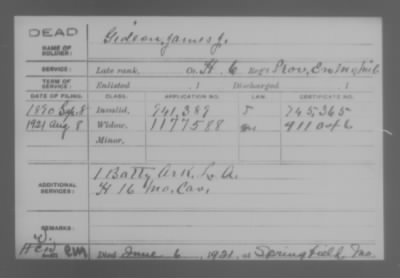 DEAD
NAME OF SOLDIER: Gideon, James J.
SERVICE: Late rank, Co. H, 6 Reg't Prov. Enr. Mo. Mil.
TERM OF SERVICE: Enlisted , 1 Discharged , 1
DATE OF FILING. CLASS. APPLICATION NO. LAW. CERTIFICATE NO.
1890 Sep. 8 Invalid, 941,389 745,365
1921 Aug 8 Widow, 1177588 911
Minor,
ADDITIONAL SERVICES: 1 Batty Ark. L. A.
H 16 Mo. Cav.
REMARKS:
Died June 6, 1921, at Springfield, Mo.